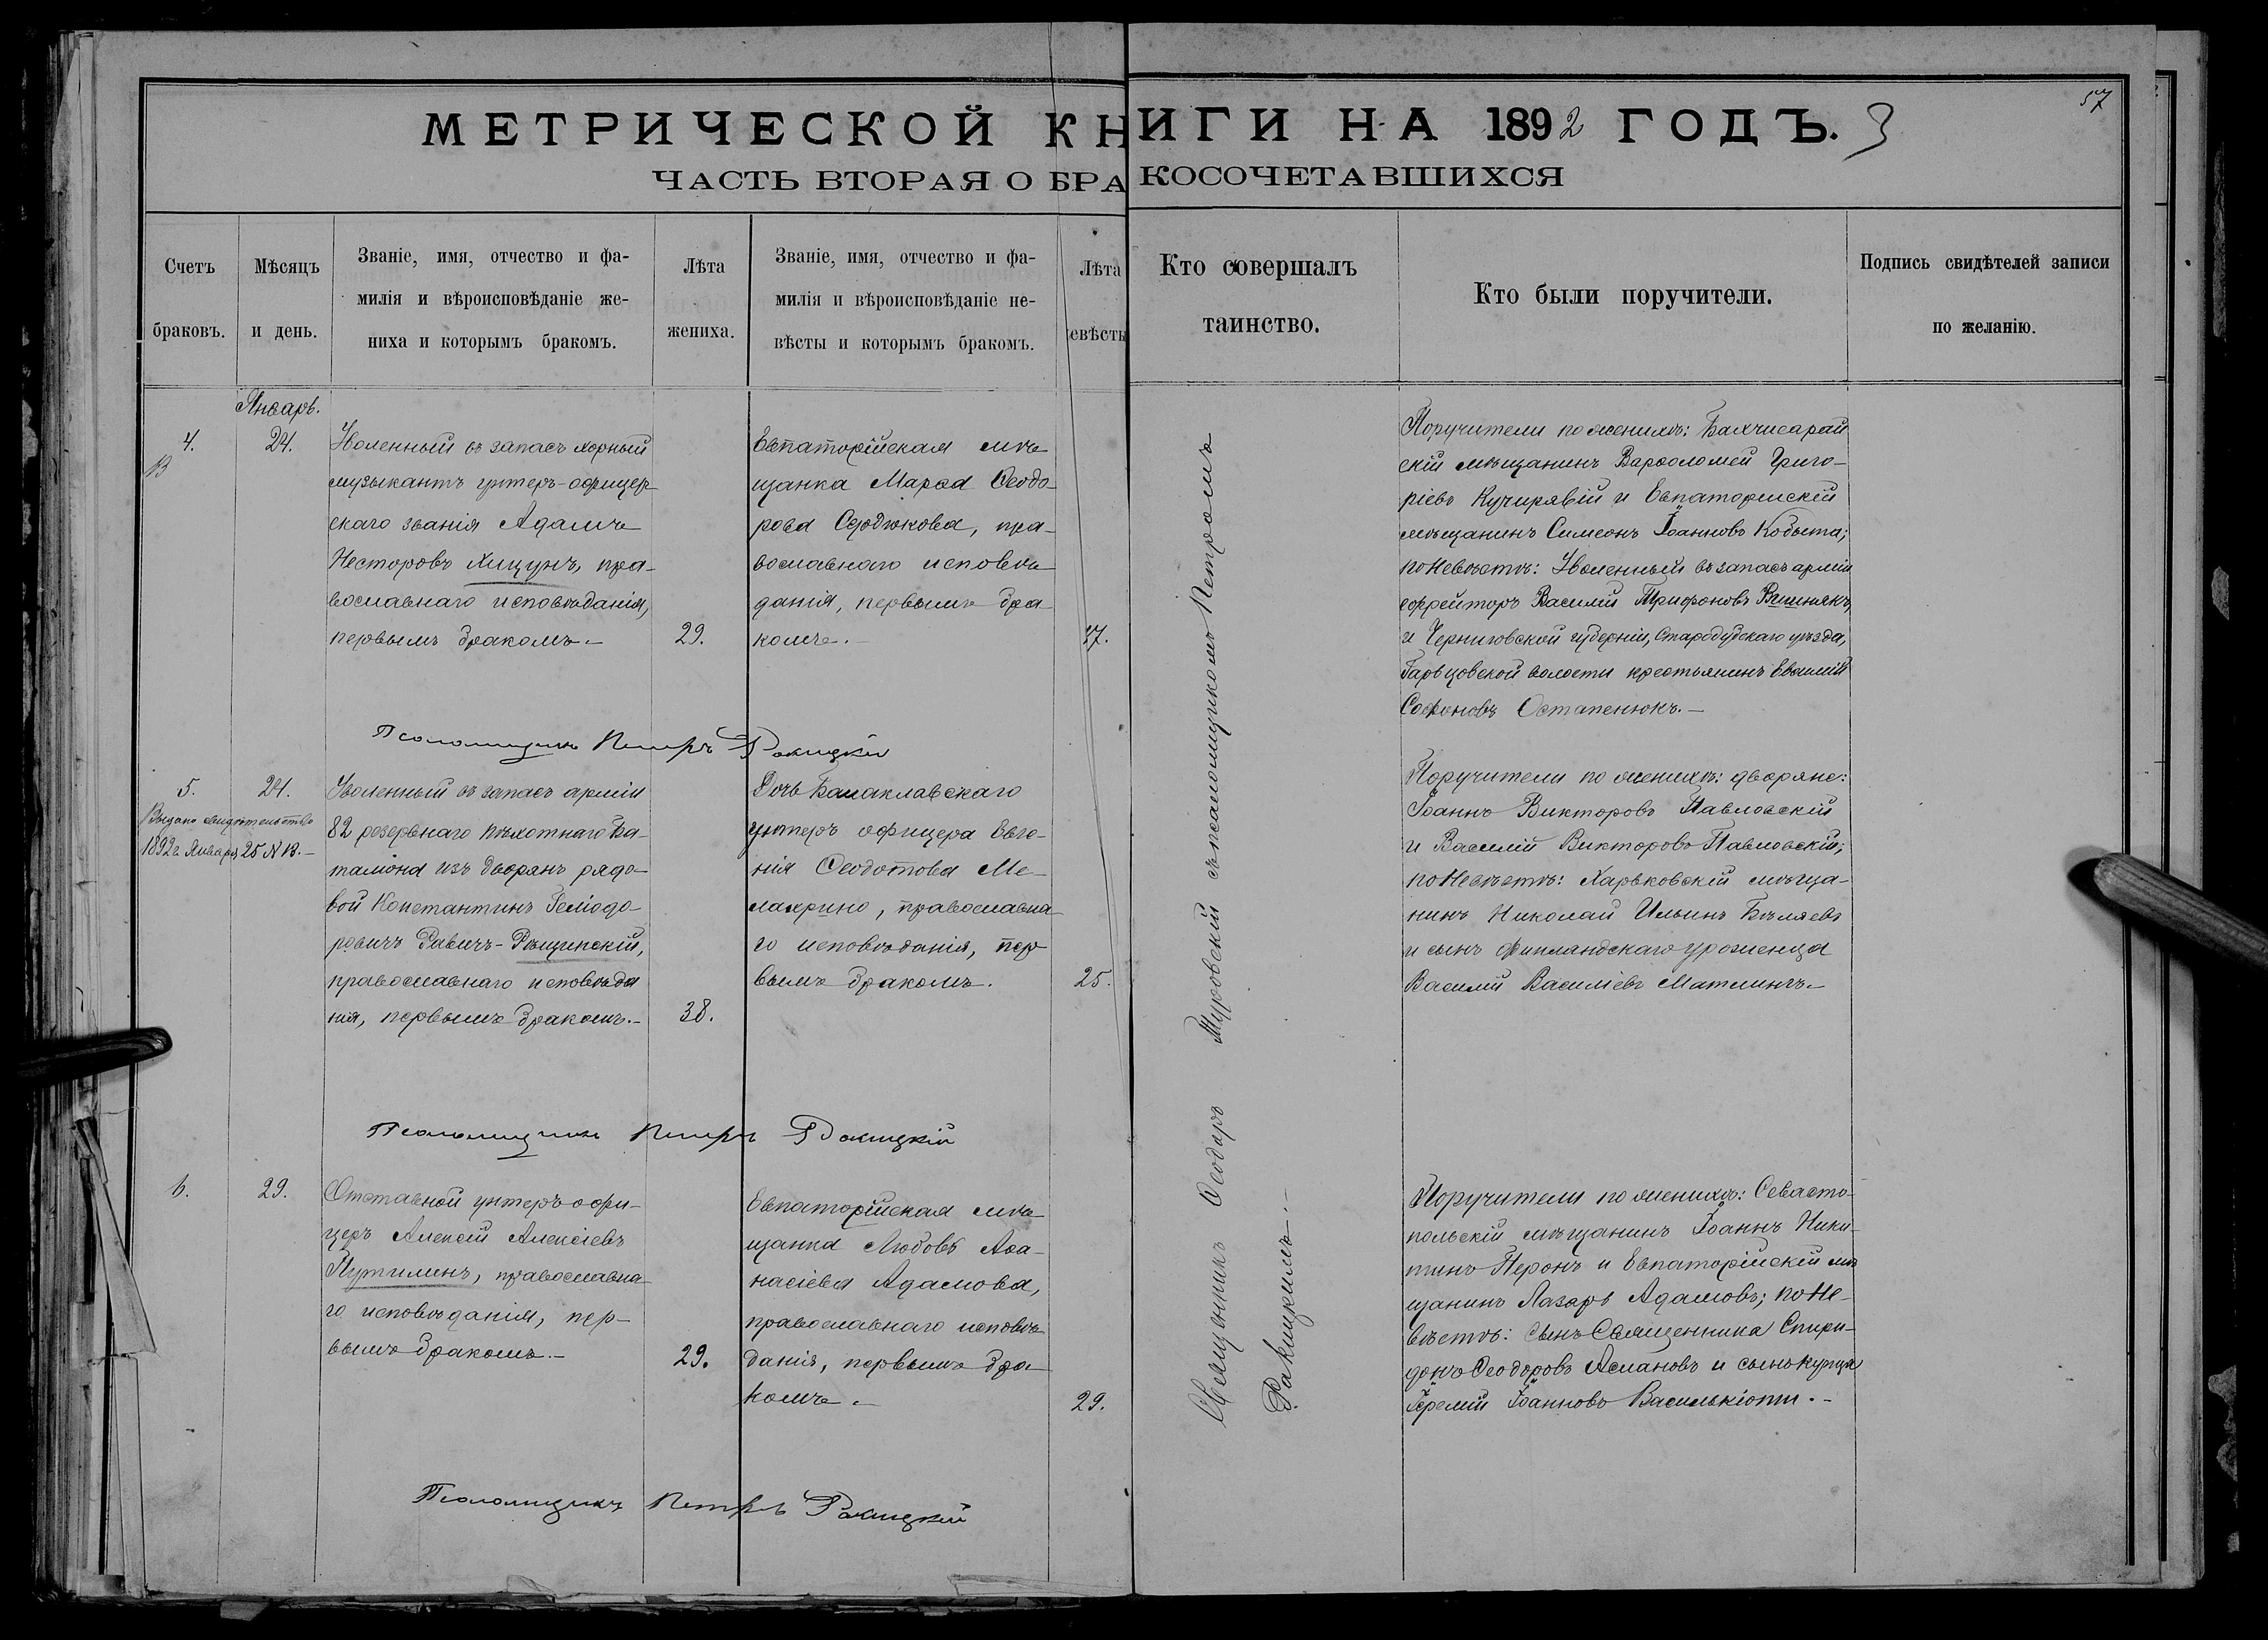 57
МЕТРИЧЕСКОЙ КНИГИ НА 1892 ГОДЪ. 3
ЧАСТЬ ВТОРАЯ О БРАКОСОЧЕТАВШИХСЯ
Счетъ
браковъ.
Мѣсяцъ
и день.
Званіе, имя, отчество и фа-
милія и вѣроисповѣданіе же-
ниха и которымъ бракомъ.
Лѣта
жениха.
Званіе, имя, отчество и фа-
милія и вѣроисповѣданіе не-
вѣсты и которымъ бракомъ.
Лѣта
евѣсты
Кто совершалъ
таинство.
Кто были поручители.
Подпись свидѣтелей записи
по желанію.
Январь.
4.
24.
Уволенный въ запасъ хорный
музыкантъ унтеръ-офицер
скаго званія Адамъ
Несторовъ Хицунъ, пра-
вославнаго исповѣданія,
первымъ бракомъ.-
29.
Евпаторійская мѣ
щанка Марѳа Ѳеодо-
рова Сердюкова, пра-
вославнаго исповѣ
данія, первымъ бра
комъ.-
27.
Поручители по женихѣ: Бахчисарай
скій мѣщанинъ Варѳоломей Григо-
ріевъ Кучирявій и Евпаторійскій
мѣщанинъ Симеонъ Іоанновъ Кобыта;
по невѣстѣ: Уволенный въ запасъ арміи
ефрейторъ Василій Трифоновъ Вишнякъ,
и Черниговской губерніи, Стародубскаго уѣзда,
Гарцовской волости крестьянинъ Евѳимій
Софоновъ Остапенюкъ.-
Псаломщикъ Петръ Ракицкій
5.
24.
Выдано свидѣтельство
1892 г. Января 25 № 13.-
Уволенный въ запасъ арміи
82 резервнаго пѣхотнаго Ба-
таліона изъ дворянъ рядо-
вой Константинъ Геліодо-
ровичъ Равичъ-Рощинскій,
православнаго исповѣда
нія, первымъ бракомъ.-
38.
Дочь Балаклавскаго
унтеръ офицера Евге-
нія Ѳеодотова Ме-
лахрино, православна
го исповѣданія, пер
вымъ бракомъ.
25.
Поручители по женихѣ: дворяне:
Іоаннъ Викторовъ Павловскій
и Василій Викторовъ Павловскій;
по невѣстѣ: Харьковскій мѣща-
нинъ Николай Ильинъ Бѣляевъ
и сынъ Финляндскаго уроженца
Василій Василіевъ Матлинъ.-
Псаломщикъ Петръ Ракицкій
6.
29.
Отставной унтеръ офи-
церъ Алексій Алексіевъ
Путилинъ, православна
го исповѣданія, пер-
вымъ бракомъ.-
29.
Евпаторійская мѣ
щанка Любовь Аѳа-
насіева Адамова,
православнаго исповѣ
данія, первымъ бра
комъ.-
29.
Поручители по женихѣ: Севасто-
польскій мѣщанинъ Іоаннъ Ники-
тинъ Перонъ и Евпаторійскій мѣ
щанинъ Лазарь Адамовъ; по не-
вѣстѣ: сынъ Священника Спири-
донъ Ѳеодоровъ Аслановъ и сынъ купца
Іеремій Іоанновъ Василькіоти.-
Псаломщикъ Петръ Ракицкій
Священникъ Ѳеодоръ Туровскій съ псаломщикомъ Петромъ
Ракицкимъ.-